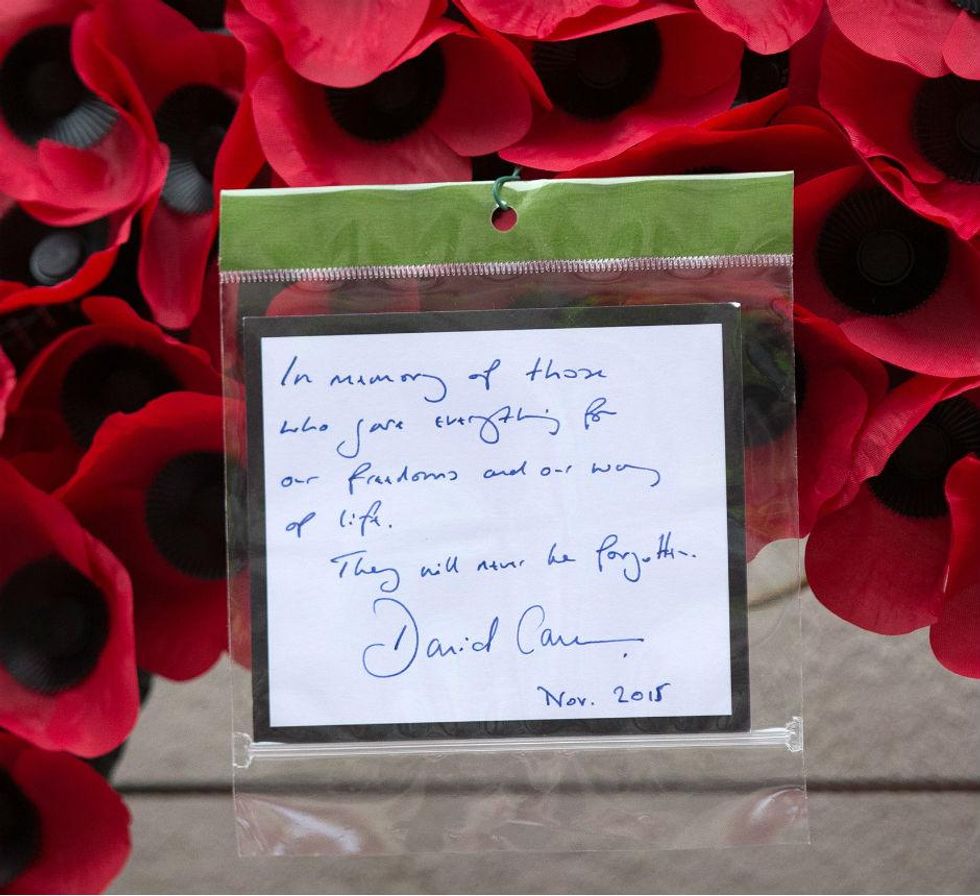 In memory of those
who gave everything for
our freedoms and our way
of life.
They will never be forgotten.
David Cameron.
Nov. 2015